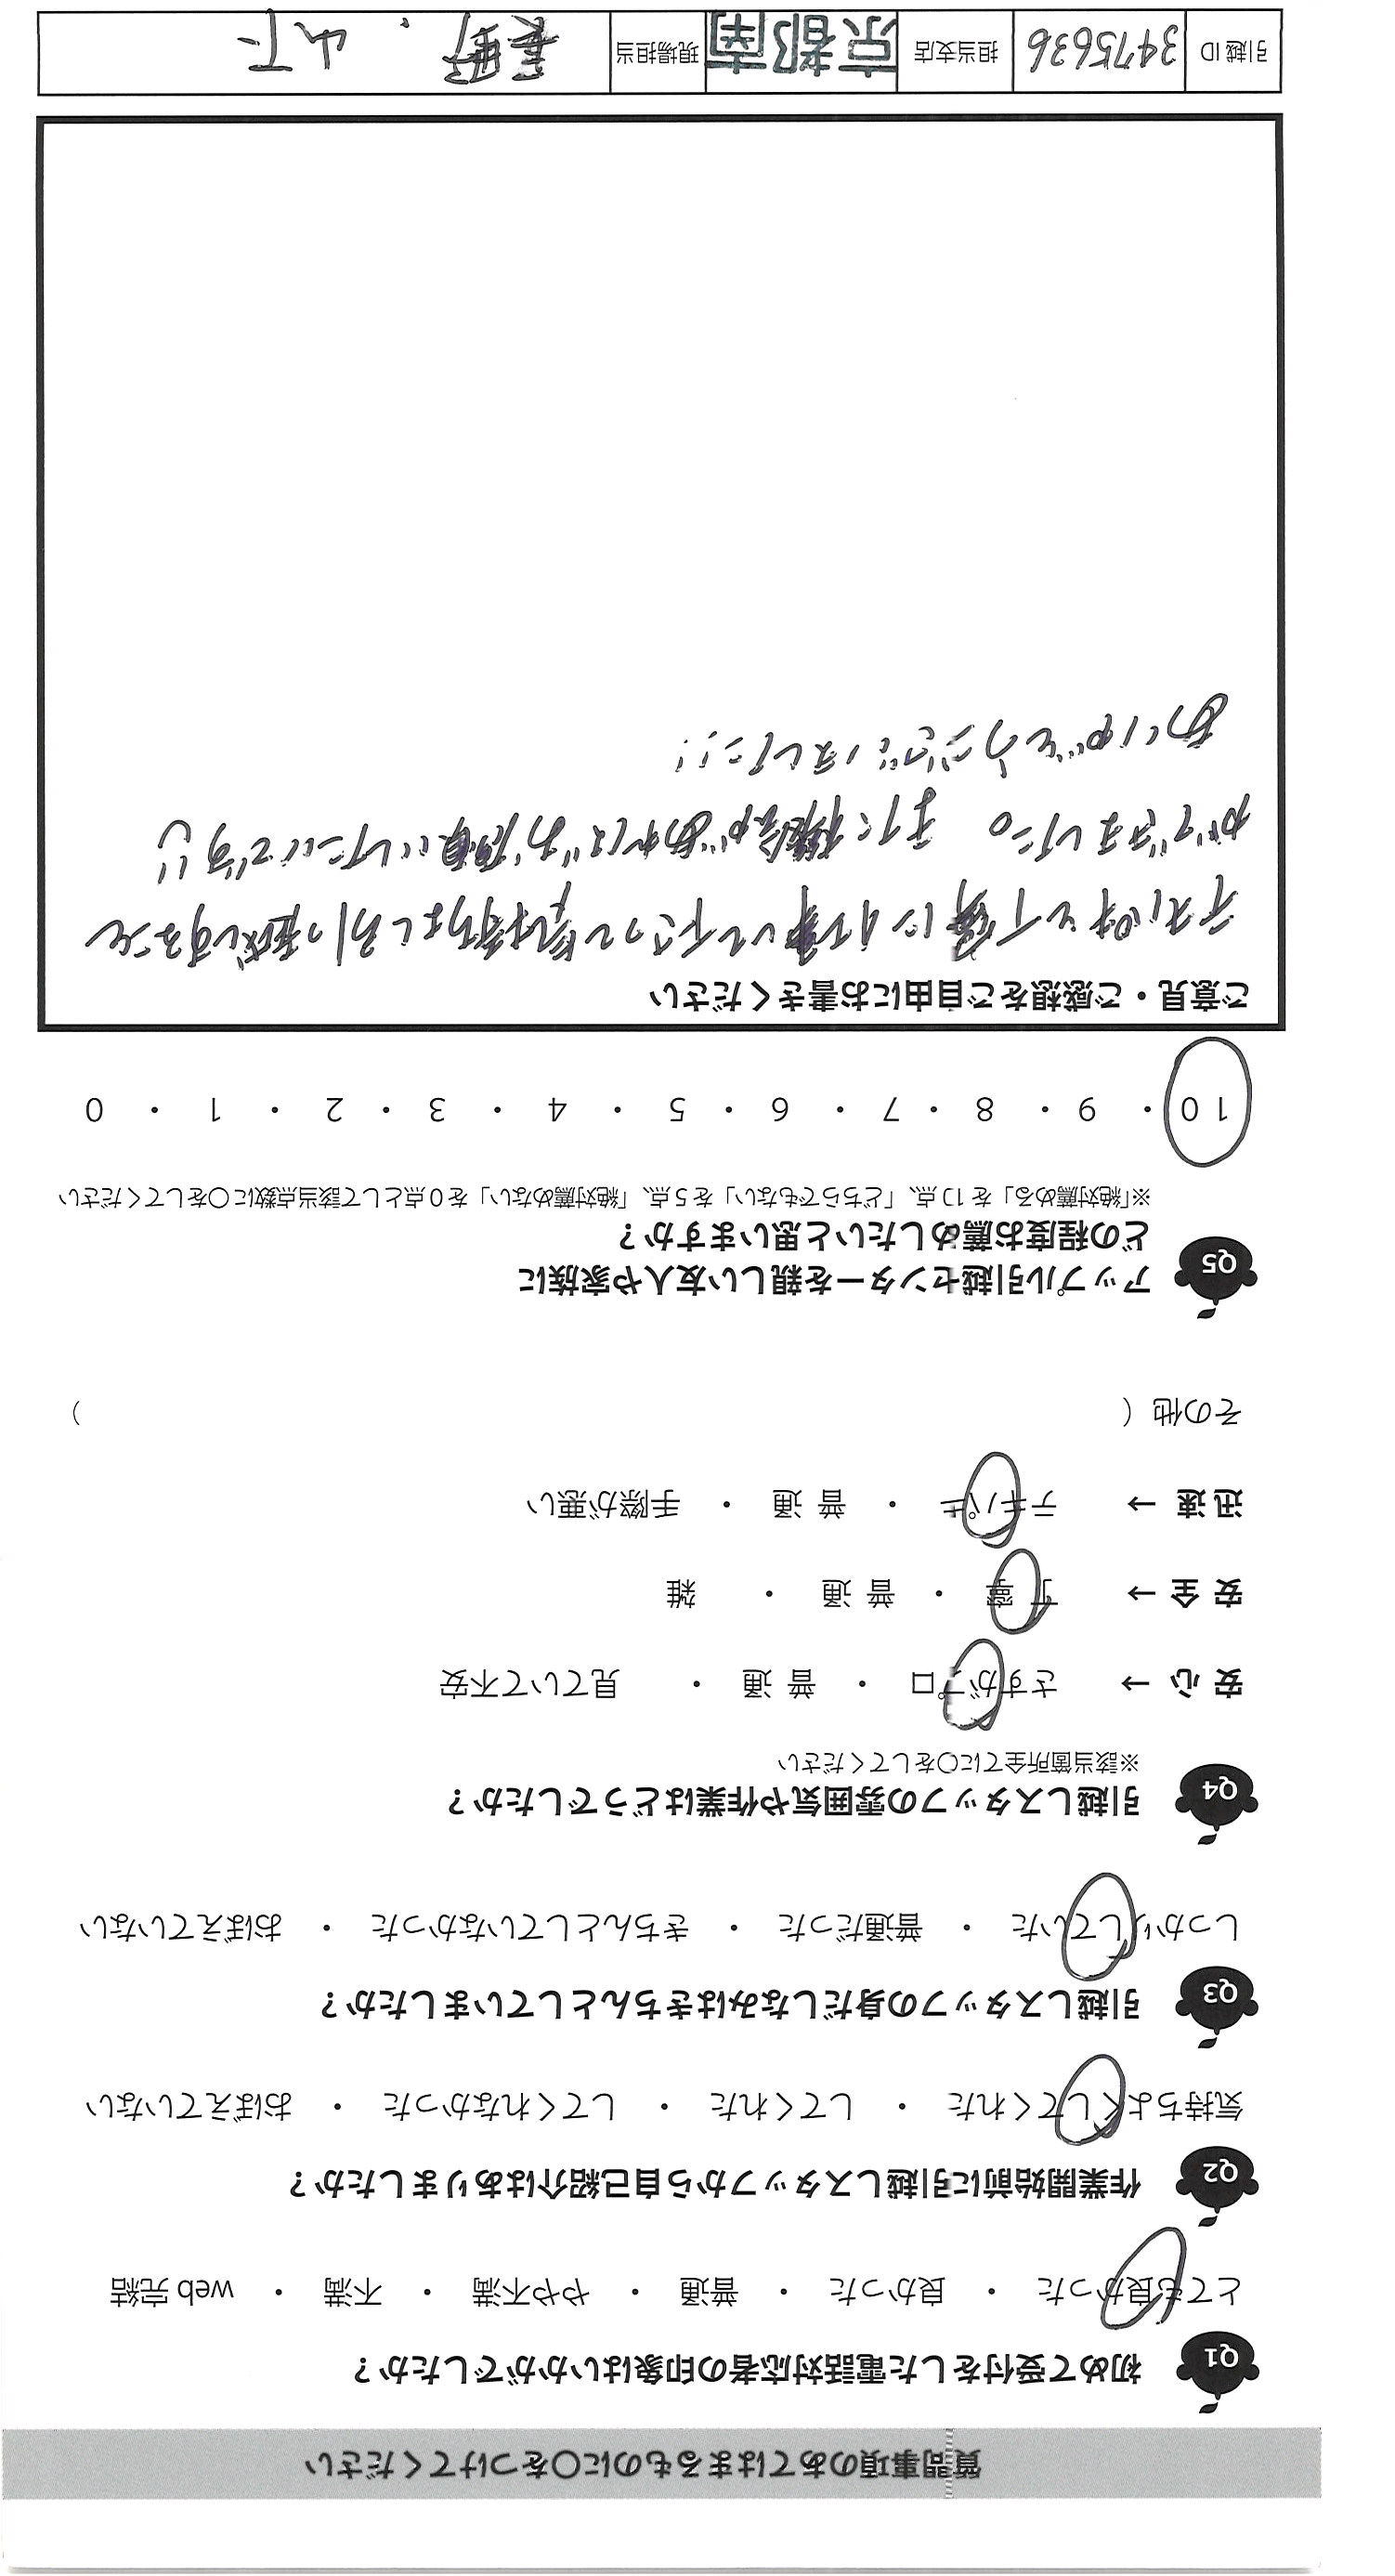 質問事項のあてはまるものに〇をつけてください
Q1 初めて受付をした電話対応者の印象はいかがでしたか？
とても良かった ・ 良かった ・ 普通 ・ やや不満 ・ 不満 ・ web 完結
Q2 作業開始前に引越しスタッフから自己紹介はありましたか？
気持ちよくしてくれた ・ してくれた ・ してくれなかった ・ おぼえていない
Q3 引越しスタッフの身だしなみはきちんとしていましたか？
しっかりしていた ・ 普通だった ・ きちんとしていなかった ・ おぼえていない
Q4 引越しスタッフの雰囲気や作業はどうでしたか？
※該当箇所全てに〇をしてください
安 心 → さすがプロ ・ 普 通 ・ 見ていて不安
安 全 → 丁 寧 ・ 普 通 ・ 雑
迅 速 → テキパキ ・ 普 通 ・ 手際が悪い
その他（ ）
Q5 アップル引越センターを親しい友人や家族に
どの程度お薦めしたいと思いますか？
※「絶対薦める」を 10 点、「どちらでもない」を 5 点、「絶対薦めない」を 0 点として該当点数に〇をしてください
10 ・ 9 ・ 8 ・ 7 ・ 6 ・ 5 ・ 4 ・ 3 ・ 2 ・ 1 ・ 0
ご意見・ご感想をご自由にお書きください
テキパキと丁寧に仕事して下さって気持ちよく引っ越しすること
ができました。 また機会があればお願いしたいです!!
ありがとうございました!!
引越 ID 3475636 担当支店 京都南 現場担当 長野 . 山下